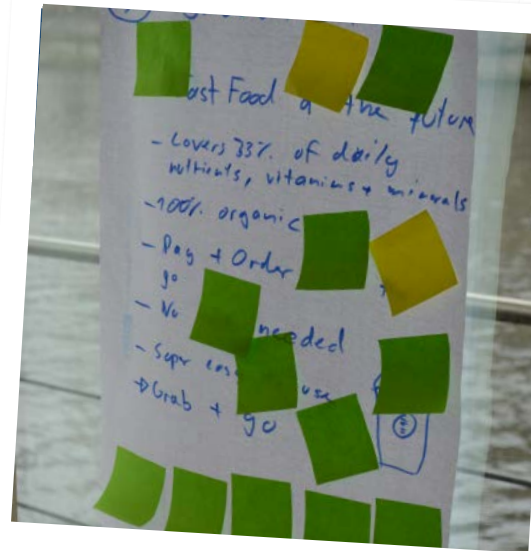 ast Food the future
- Covers 33% of daily
nutrients, vitamins + minerals
- 100% organic
- Pay + Order
go
- No needed
- Super use
→ Grab + go